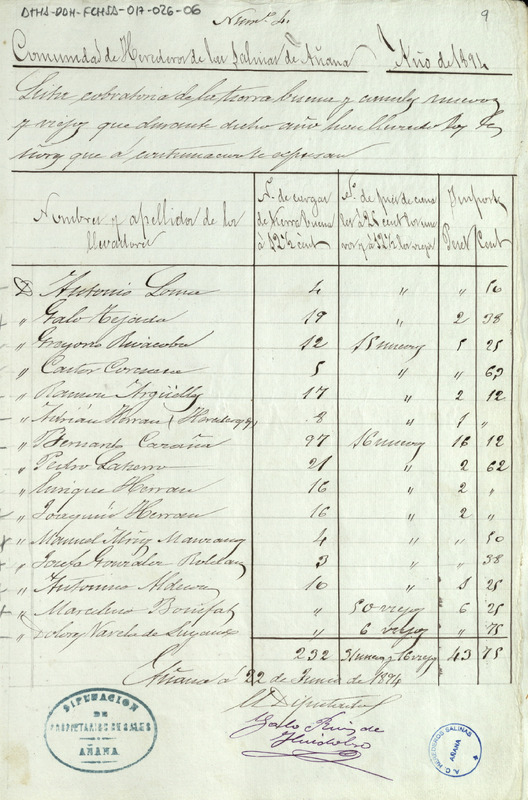 DTHS-DDH-FCHSA-017-026-06
Num. 4.
9
Comunidad de Herederos de las Salinas de Añana
Año de 1894
Lista cobratoria de la tierra buena y canales nuevos
y viejos que durante dicho año han llevado los Se
ñores que á continuación se espresan
Nombres y apellidos de los llevadores
N.º de cargas de tierra buena á 12½ cent
N.º de pies de canales á 25 cent los nuevos y á 12½ los viejos
Importe
Peset Cent
D. Antonio Loma 4 " " 50
" Galo Tejada 19 " 2 38
" Gregorio Ruiacoba 12 15 nuevos 5 25
" Castor 5 " " 63
" Ramon Argüelles 17 " 2 12
" Adrián Herran (Herederos) 8 " 1 "
" Bernardo 97 16 nuevos 16 12
" Pedro 21 " 2 62
" Enrique Herran 16 " 2 "
" Joaquin Herran 16 " 2 "
" Manuel 4 " " 50
" Josefa Gonzalez Roldan 3 " " 38
" Antonino 10 " 1 25
" Marcelino Bonifaz " 50 viejos 6 25
" Dolores Varela de " 6 viejos " 75
232 31 nuevos y 56 viejos 43 75
Añana á 22 de Junio de 1894
El Diputado
Galo Ruiz de
Huidobro
DIPUTACION
DE
PROPIETARIOS DE SALES
AÑANA
A.C. HEREDEROS SALINAS
AÑANA